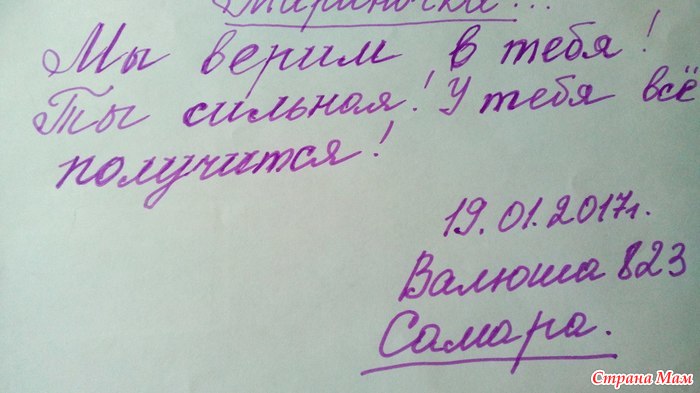 Мы верим в тебя!
Ты сильная! У тебя всё
получится!
19.01.2017г.
Валюша 823
Самара.
Страна Мам